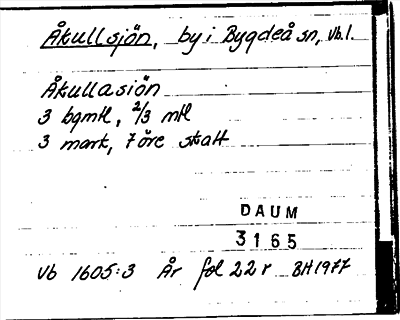 Åkullsjön, by i Bygdeå sn, Vb.l.
Åkullasiön
3 bgmtl, 2/3 mtl
3 mark, 7 öre skatt
DAUM
3165
Vb 1605:3 År fol 22 r BH1977